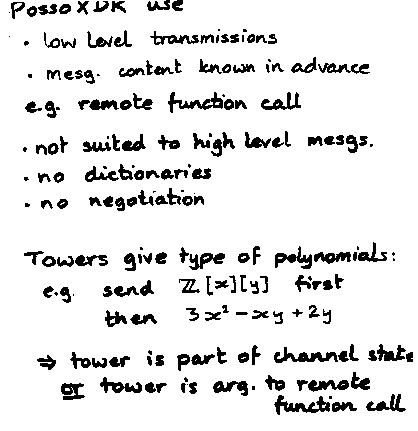 PossoXDR use
• low level transmissions
• mesg. content known in advance
e.g. remote function call
• not suited to high level mesgs.
• no dictionaries
• no negotiation
Towers give type of polynomials:
e.g. send ℤ[x][y] first
then 3x² - xy + 2y
⇒ tower is part of channel state
or tower is arg. to remote
function call